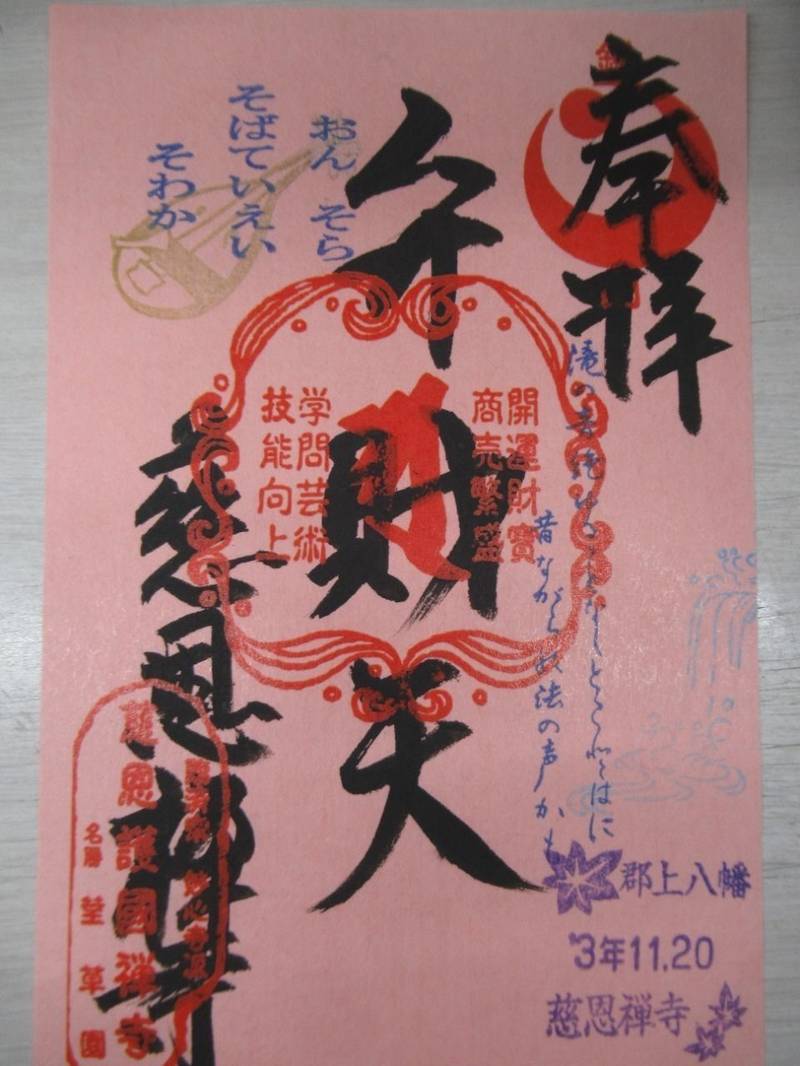 奉拝
滝の音絶ゆることなしとこしはに
昔ながらの法の声かも
弁財天
開運財寶
商売繁盛
学問芸術
技能向上
おん そら
そばていえい
そわか
慈恩禅寺
慈恩護國禅寺
名勝 荎草園
郡上八幡
3年11.20
慈恩禅寺